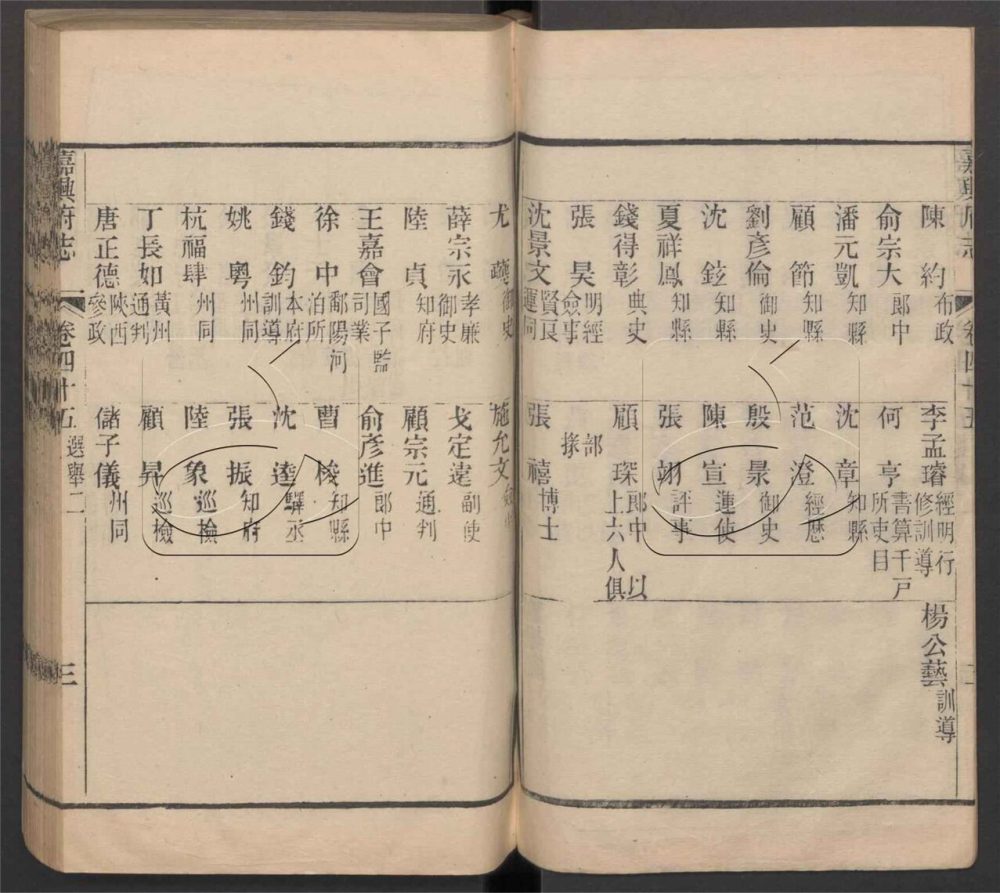 陳約 布政
俞宗大 郎中
潘元凱 知縣
顧節 知縣
劉彥倫 御史
沈鉉 知縣
夏祥鳳 知縣
錢得彰 典史
張昊 明經 僉事
沈景文 賢良 運同
李孟璿 經明行修訓導
何亨 書算千戸所吏目
沈章 知縣
范澄 經歷
殷景 御史
陳宣 運使
張翊 評事
顧琛 郎中 以上六人俱
部掾
張禧 博士
楊公藝 訓導
尤 御史
薛宗永 孝廉 御史
陸貞 知府
王嘉會 國子監司業
徐中 鄱陽河泊所
錢鈞 本府訓導
姚粵 州同
杭福肆 州同
丁長如 黃州通判
唐正德 陝西參政
施允文
戈定遠 副使
顧宗元 通判
俞彥進 郎中
曹梭 知縣
沈達 驛丞
張振 知府
陸象 巡檢
顧昇 巡檢
儲子儀 州同
嘉興府志 卷四十五 選舉二 三